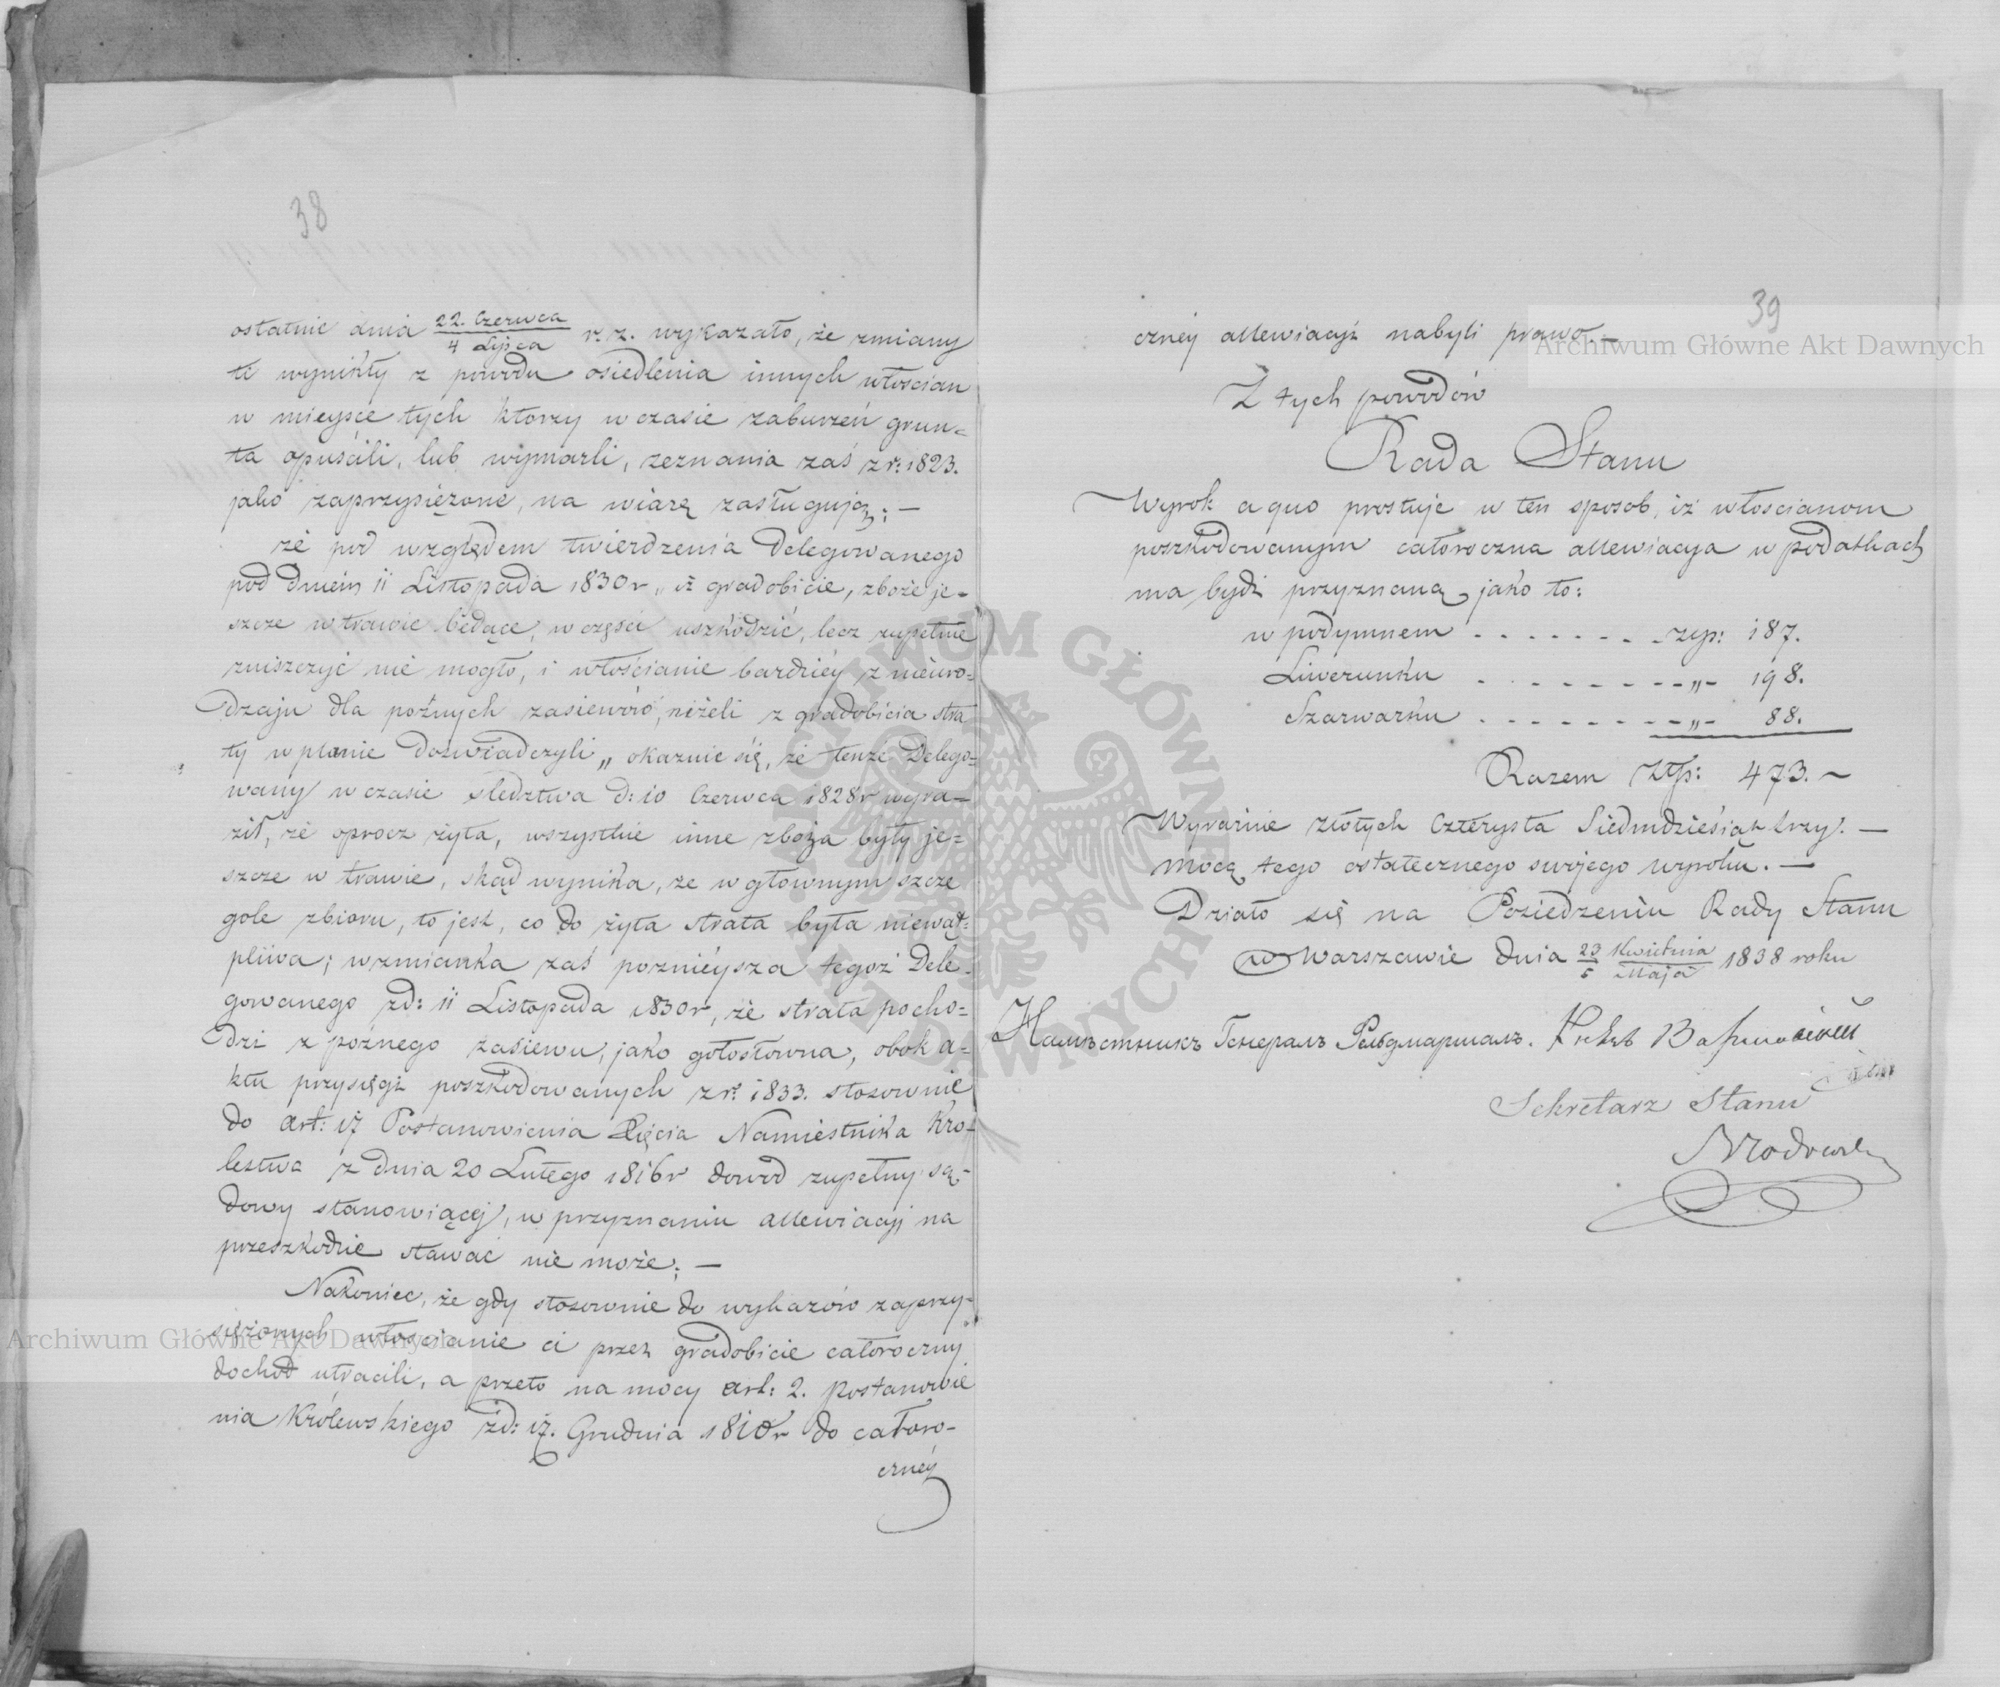 38
ostatnie dnia 22. Czerwca / 4 Lipca r. z. wykazało, że zmiany
te wynikły z powodu osiedlenia innych włoscian
w mieysce tych ktorzy w czasie zaburzeń grun=
ta opuścili, lub wymarli, zeznania zaś z r: 1823.
jako zaprzysiężone, na wiarę zasługują; —
że pod względem twierdzenia Delegowanego
pod dniem 11 Listopada 1830 r „ iż gradobicie, zboże je=
szcze w trawie będące, w części uszkodzić, lecz zupełnie
zniszczyć nie mogło, i włościanie bardziéy z nieuro=
dzaju dla poźnych zasiewów, niżeli z gradobicia stra
ty w plonie doświadczyli „ okazuie się, że tenże Delego=
wany w czasie sledztwa d: 10 Czerwca 1828 r wyra=
ził, że oprocz żyta, wszystkie inne zboża były je=
szcze w trawie, skąd wynika, że w głownym szcze
gole zbioru, to jest, co do żyta strata była niewąt=
pliwa; wzmianka zaś poznieysza tegoż Dele=
gowanego z d: 11 Listopada 1830 r, że strata pocho=
dzi z poźnego zasiewu, jako gołosłowna, obok a=
ktu przysięgi poszkodowanych z r: 1833. stosownie
do art: 17 Postanowienia Xięcia Namiestnika Kro=
lestwa z dnia 20 Lutego 1816 r dowod zupełny są=
dowy stanowiącej, w przyznaniu allewiacyi na
przeszkodzie stawać nie może; —
Nakoniec, że gdy stosownie do wykazów zaprzy=
siężonych włoscianie ci przez gradobicie całoroczny
dochod utracili, a przeto na mocy art: 2. Postanowie
nia Królewskiego z d: 17. Grudnia 1810 r do całoro=
cznéy
39
cznéy allewiacyi nabyli prawo. —
Z tych powodów
Rada Stanu
Wyrok a quo prostuje w ten sposob, iż włoscianom
poszkodowanym całoroczna allewiacya w podatkach
ma bydź przyznaną, jako to:
w podymnem . . . . . . . . złp: 187.
Liwerunku . . . . . . . . „ 198.
Szarwarku . . . . . . . . „ 88.
Razem Złp: 473. ~
Wyraźnie złotych Czterysta Siedmdziesiąt trzy. —
mocą tego ostatecznego swojego wyroku. —
Działo się na Posiedzeniu Rady Stanu
w Warszawie dnia 23 Kwietnia / 5 Maja 1838 roku
Намѣстникъ Генералъ Фельдмаршалъ. Князь Варшавскій
Sekretarz Stanu
Archiwum Główne Akt Dawnych
Archiwum Główne Akt Dawnych
ARCHIWUM GŁÓWNE AKT DAWNYCH